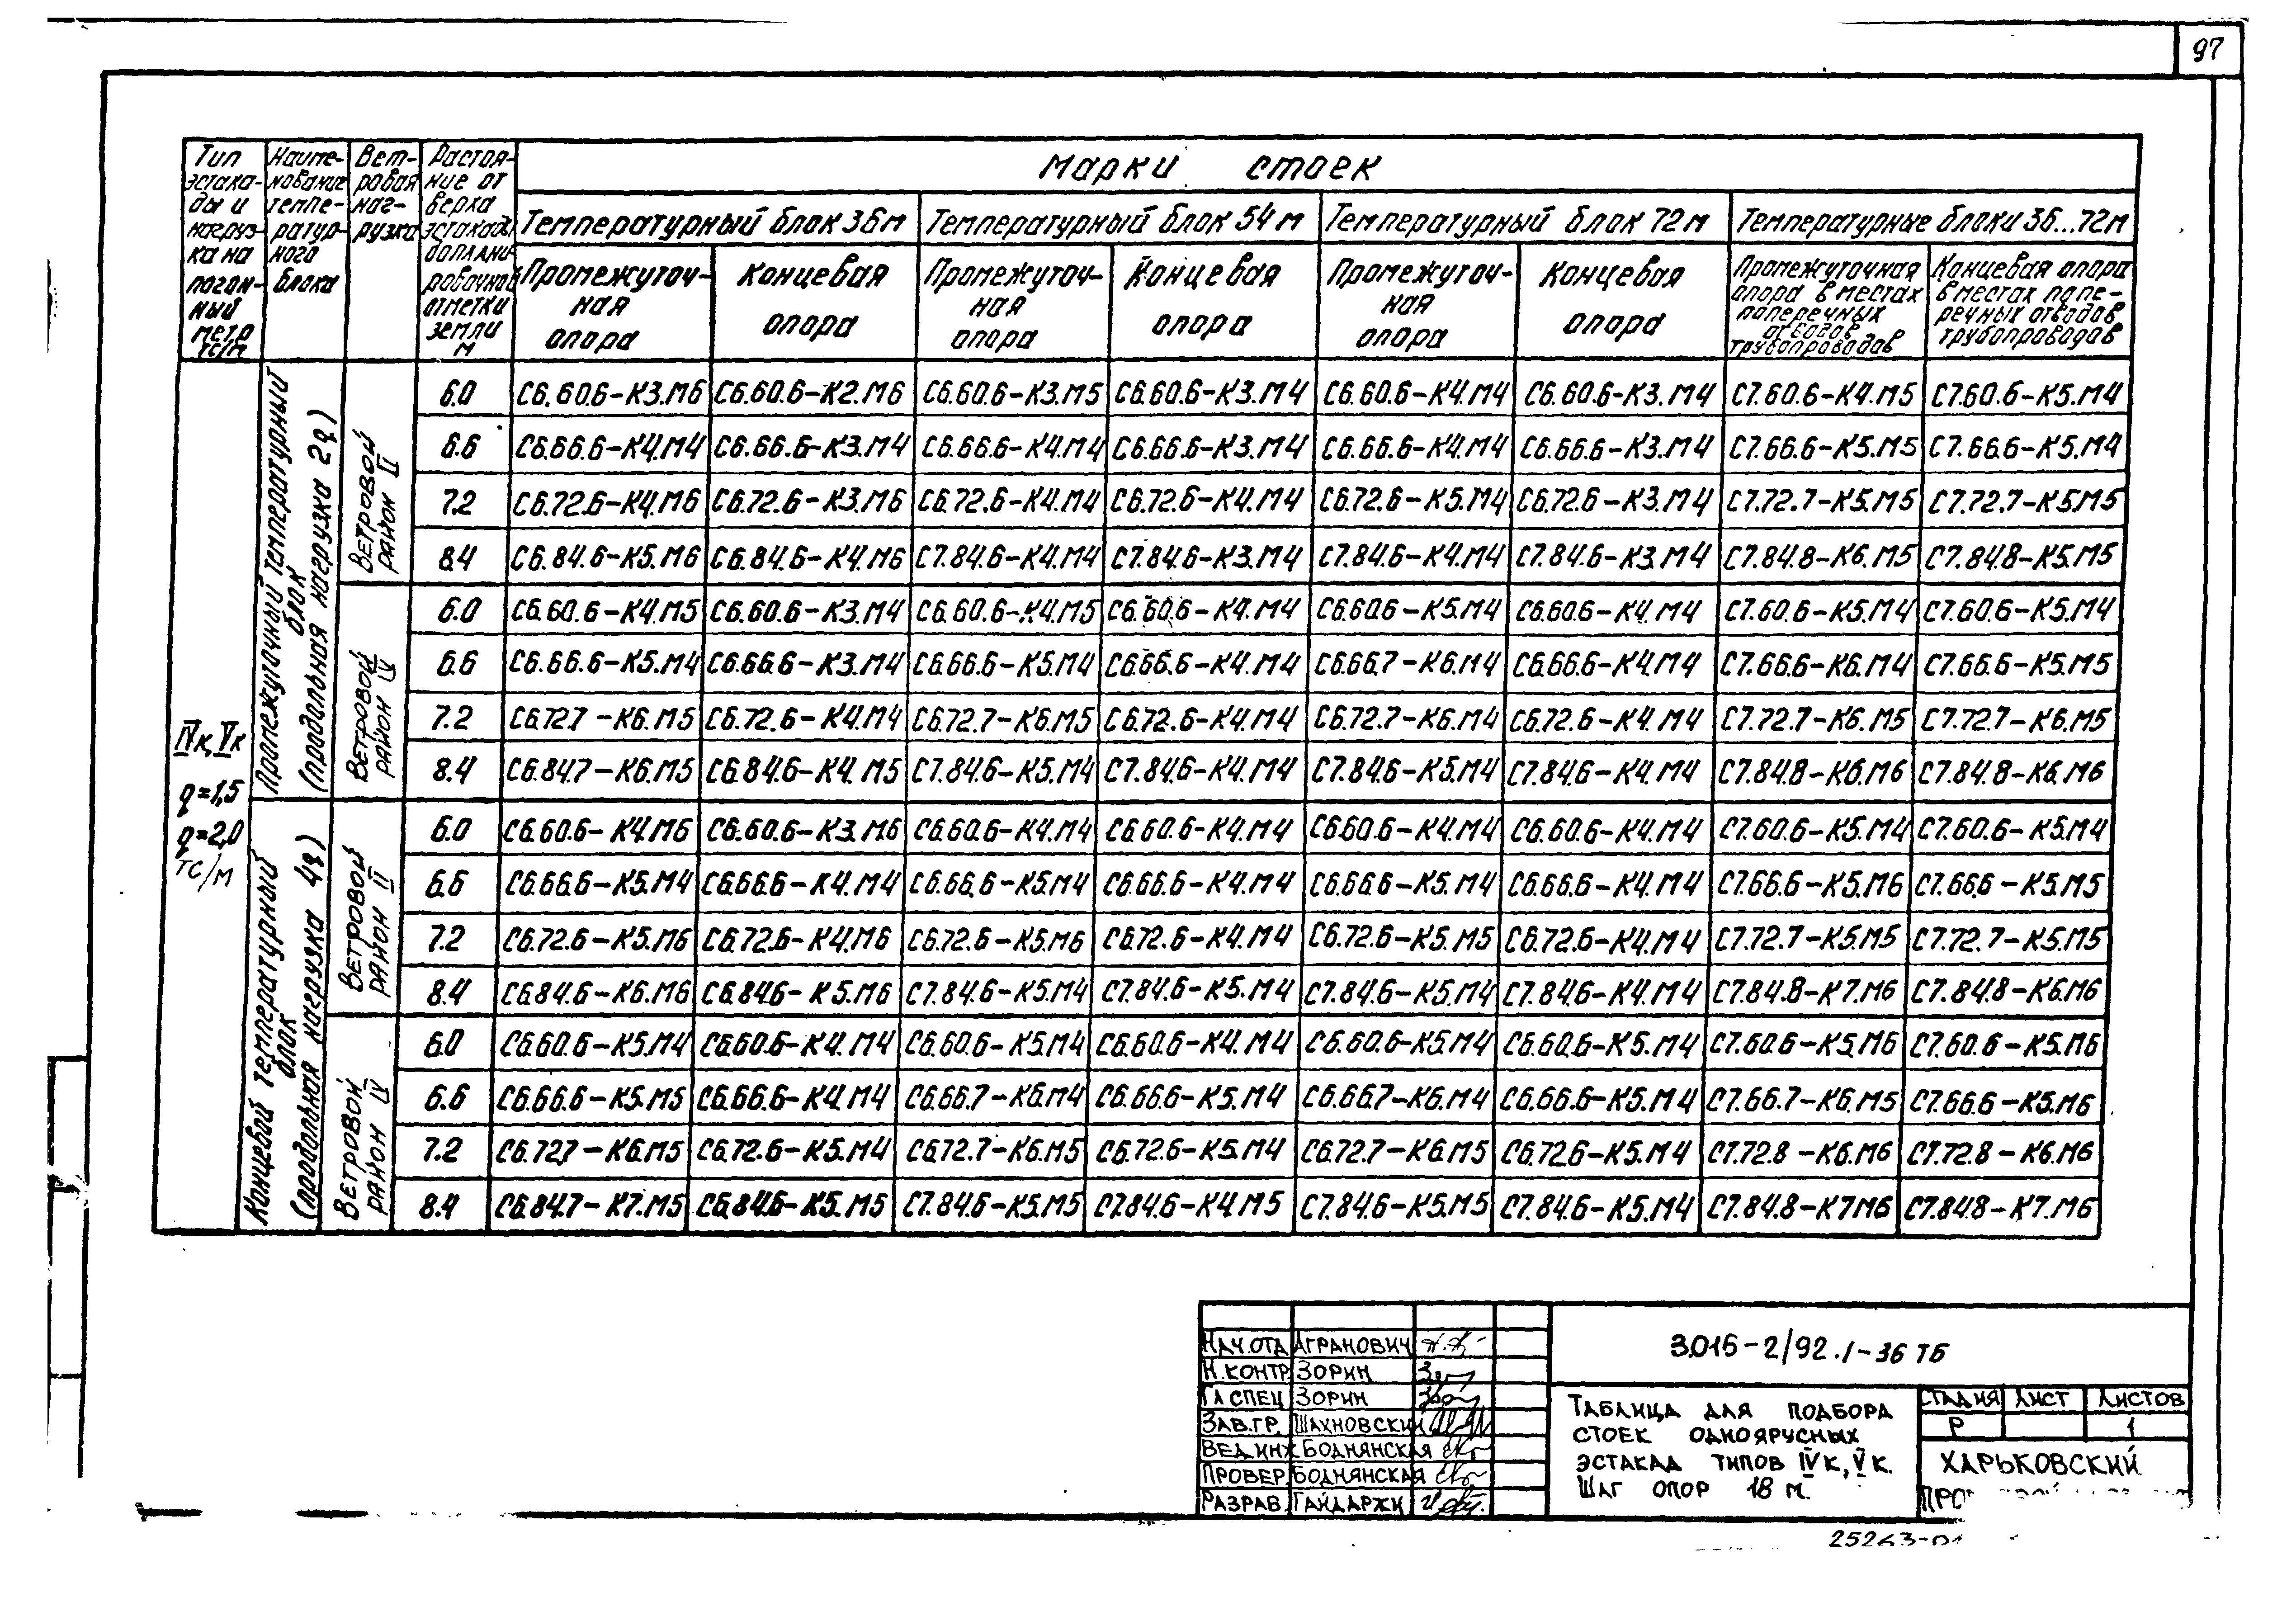 97
Тип эстака-ды и нагруз-ка на погон-ный метр тс/м
Наиме-нование темпе-ратур-ного блока
Вет-ровая наг-рузка
Растоя-ние от верха эстакады допланировочной отметки земли м
Марки стоек
Температурный блок 36м
Температурный блок 54м
Температурный блок 72м
Температурные блоки 36...72м
Промежуточ-ная опора
Концевая опора
Промежуточ-ная опора
Концевая опора
Промежуточ-ная опора
Концевая опора
Промежуточная опора в местах поперечных отводов трубопроводов
Концевая опора в местах попе-речных отводов трубопроводов
IVк, Vк
q=1,5
q=2,0
тс/м
Промежуточный температурный блок (продольная нагрузка 2q)
Ветровой район II
6.0 С6.60.6-К3.М6 С6.60.6-К2.М6 С6.60.6-К3.М5 С6.60.6-К3.М4 С6.60.6-К4.М4 С6.60.6-К3.М4 С7.60.6-К4.М5 С7.60.6-К5.М4
6.6 С6.66.6-К4.М4 С6.66.6-К3.М4 С6.66.6-К4.М4 С6.66.6-К3.М4 С6.66.6-К4.М4 С6.66.6-К3.М4 С7.66.6-К5.М5 С7.66.6-К5.М4
7.2 С6.72.6-К4.М6 С6.72.6-К3.М6 С6.72.6-К4.М4 С6.72.6-К4.М4 С6.72.6-К5.М4 С6.72.6-К3.М4 С7.72.7-К5.М5 С7.72.7-К5.М5
8.4 С6.84.6-К5.М6 С6.84.6-К4.М6 С7.84.6-К4.М4 С7.84.6-К3.М4 С7.84.6-К4.М4 С7.84.6-К3.М4 С7.84.8-К6.М5 С7.84.8-К5.М5
Ветровой район IV
6.0 С6.60.6-К4.М5 С6.60.6-К3.М4 С6.60.6-К4.М5 С6.60.6-К4.М4 С6.60.6-К5.М4 С6.60.6-К4.М4 С7.60.6-К5.М4 С7.60.6-К5.М4
6.6 С6.66.6-К5.М4 С6.66.6-К3.М4 С6.66.6-К5.М4 С6.66.6-К4.М4 С6.66.7-К6.М4 С6.66.6-К4.М4 С7.66.6-К6.М4 С7.66.6-К5.М5
7.2 С6.72.7-К6.М5 С6.72.6-К4.М4 С6.72.7-К6.М5 С6.72.6-К4.М4 С6.72.7-К6.М4 С6.72.6-К4.М4 С7.72.7-К6.М5 С7.72.7-К6.М5
8.4 С6.84.7-К6.М5 С6.84.6-К4.М5 С7.84.6-К5.М4 С7.84.6-К4.М4 С7.84.6-К5.М4 С7.84.6-К4.М4 С7.84.8-К6.М6 С7.84.8-К6.М6
Концевой температурный блок (продольная нагрузка 4q)
Ветровой район II
6.0 С6.60.6-К4.М6 С6.60.6-К3.М6 С6.60.6-К4.М4 С6.60.6-К4.М4 С6.60.6-К4.М4 С6.60.6-К4.М4 С7.60.6-К5.М4 С7.60.6-К5.М4
6.6 С6.66.6-К5.М4 С6.66.6-К4.М4 С6.66.6-К5.М4 С6.66.6-К4.М4 С6.66.6-К5.М4 С6.66.6-К4.М4 С7.66.6-К5.М6 С7.66.6-К5.М5
7.2 С6.72.6-К5.М6 С6.72.6-К4.М6 С6.72.6-К5.М6 С6.72.6-К4.М4 С6.72.6-К5.М5 С6.72.6-К4.М4 С7.72.7-К5.М5 С7.72.7-К5.М5
8.4 С6.84.6-К6.М6 С6.84.6-К5.М6 С7.84.6-К5.М4 С7.84.6-К5.М4 С7.84.6-К5.М4 С7.84.6-К4.М4 С7.84.8-К7.М6 С7.84.8-К6.М6
Ветровой район IV
6.0 С6.60.6-К5.М4 С6.60.6-К4.М4 С6.60.6-К5.М4 С6.60.6-К4.М4 С6.60.6-К5.М4 С6.60.6-К5.М4 С7.60.6-К5.М6 С7.60.6-К5.М6
6.6 С6.66.6-К5.М5 С6.66.6-К4.М4 С6.66.7-К6.М4 С6.66.6-К5.М4 С6.66.7-К6.М4 С6.66.6-К5.М4 С7.66.7-К6.М5 С7.66.6-К5.М6
7.2 С6.72.7-К6.М5 С6.72.6-К5.М4 С6.72.7-К6.М5 С6.72.6-К5.М4 С6.72.7-К6.М5 С6.72.6-К5.М4 С7.72.8-К6.М6 С7.72.8-К6.М6
8.4 С6.84.7-К7.М5 С6.84.6-К5.М5 С7.84.6-К5.М5 С7.84.6-К4.М5 С7.84.6-К5.М5 С7.84.6-К5.М4 С7.84.8-К7М6 С7.84.8-К7.М6
Нач.отд Агранович
Н.контр Зорин
Гл спец Зорин
Зав.гр. Шахновский
Вед.инж Боднянская
Провер. Боднянская
Разраб. Гайдаржи
3.016-2/92.1-36 ТБ
Таблица для подбора
стоек одноярусных
эстакад типов IVк, Vк.
Шаг опор 18 м.
Стадия Лист Листов
Р 1
Харьковский
25263-01